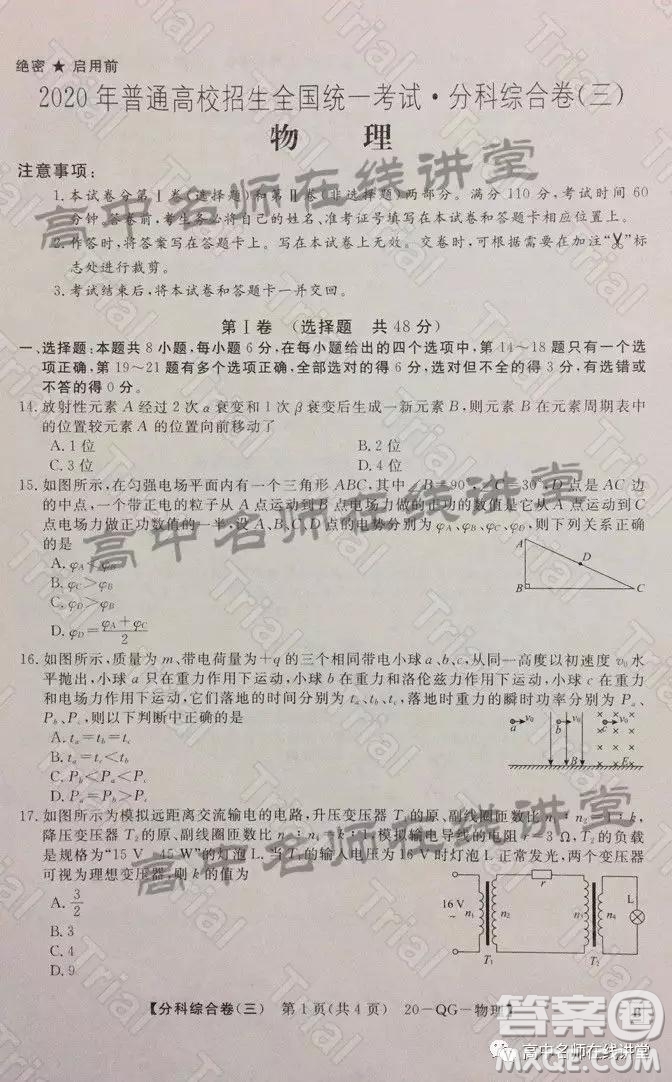 绝密 ★ 启用前
2020 年普通高校招生全国统一考试·分科综合卷(三)
物 理
注意事项:
1.本试卷分第Ⅰ卷(选择题)和第Ⅱ卷(非选择题)两部分。满分 110 分,考试时间 60
分钟.答卷前,考生务必将自己的姓名、准考证号填写在本试卷和答题卡相应位置上。
2.作答时,将答案写在答题卡上。写在本试卷上无效。交卷时,可根据需要在加注“✂”标
志处进行裁剪。
3.考试结束后,将本试卷和答题卡一并交回。
第Ⅰ卷 (选择题 共 48 分)
一、选择题:本题共 8 小题,每小题 6 分,在每小题给出的四个选项中,第 14~18 题只有一个选
项正确,第 19~21 题有多个选项正确,全部选对的得 6 分,选对但不全的得 3 分,有选错或
不答的得 0 分。
14.放射性元素 A 经过 2 次 α 衰变和 1 次 β 衰变后生成一新元素 B,则元素 B 在元素周期表中
的位置较元素 A 的位置向前移动了
A.1 位 B.2 位
C.3 位 D.4 位
15.如图所示,在匀强电场平面内有一个三角形 ABC,其中∠B=90°,∠C=30°,D 点是 AC 边
的中点,一个带正电的粒子从 A 点运动到 B 点电场力做的正功的数值是它从 A 点运动到 C
点电场力做正功数值的一半,设 A、B、C、D 点的电势分别为 φA、φB、φC、φD,则下列关系正确
的是
A.φA<φB
B.φC>φB
C.φD>φB
D.φD=(φA+φC)/2
A
D
B
C
16.如图所示,质量为 m、带电荷量为+q 的三个相同带电小球 a、b、c,从同一高度以初速度 v0 水
平抛出,小球 a 只在重力作用下运动,小球 b 在重力和洛伦兹力作用下运动,小球 c 在重力
和电场力作用下运动,它们落地的时间分别为 ta、tb、tc,落地时重力的瞬时功率分别为 Pa、
Pb、Pc,则以下判断中正确的是
A.ta=tb=tc
B.ta=tc<tb
C.Pb<Pa<Pc
D.Pa=Pb>Pc
a v0 b v0 v0
B E
17.如图所示为模拟远距离交流输电的电路,升压变压器 T1 的原、副线圈匝数比 n1∶n2=1∶k,
降压变压器 T2 的原、副线圈匝数比 n3∶n4=k∶1,模拟输电导线的电阻 r=3 Ω,T2 的负载
是规格为“15 V 45 W”的灯泡 L.当 T1 的输入电压为 16 V 时灯泡 L 正常发光,两个变压器
可视为理想变压器,则 k 的值为
A.3/2
B.3
C.4
D.9
16 V n1 n2 r n3 n4 L
T1 T2
【分科综合卷(三) 第 1 页(共 4 页) 20—QG—物理】
高中名师在线讲堂
高中名师在线讲堂
高中名师在线讲堂
高中名师在线讲堂
Trial
答案圈
高中名师在线讲堂
MXQE.COM